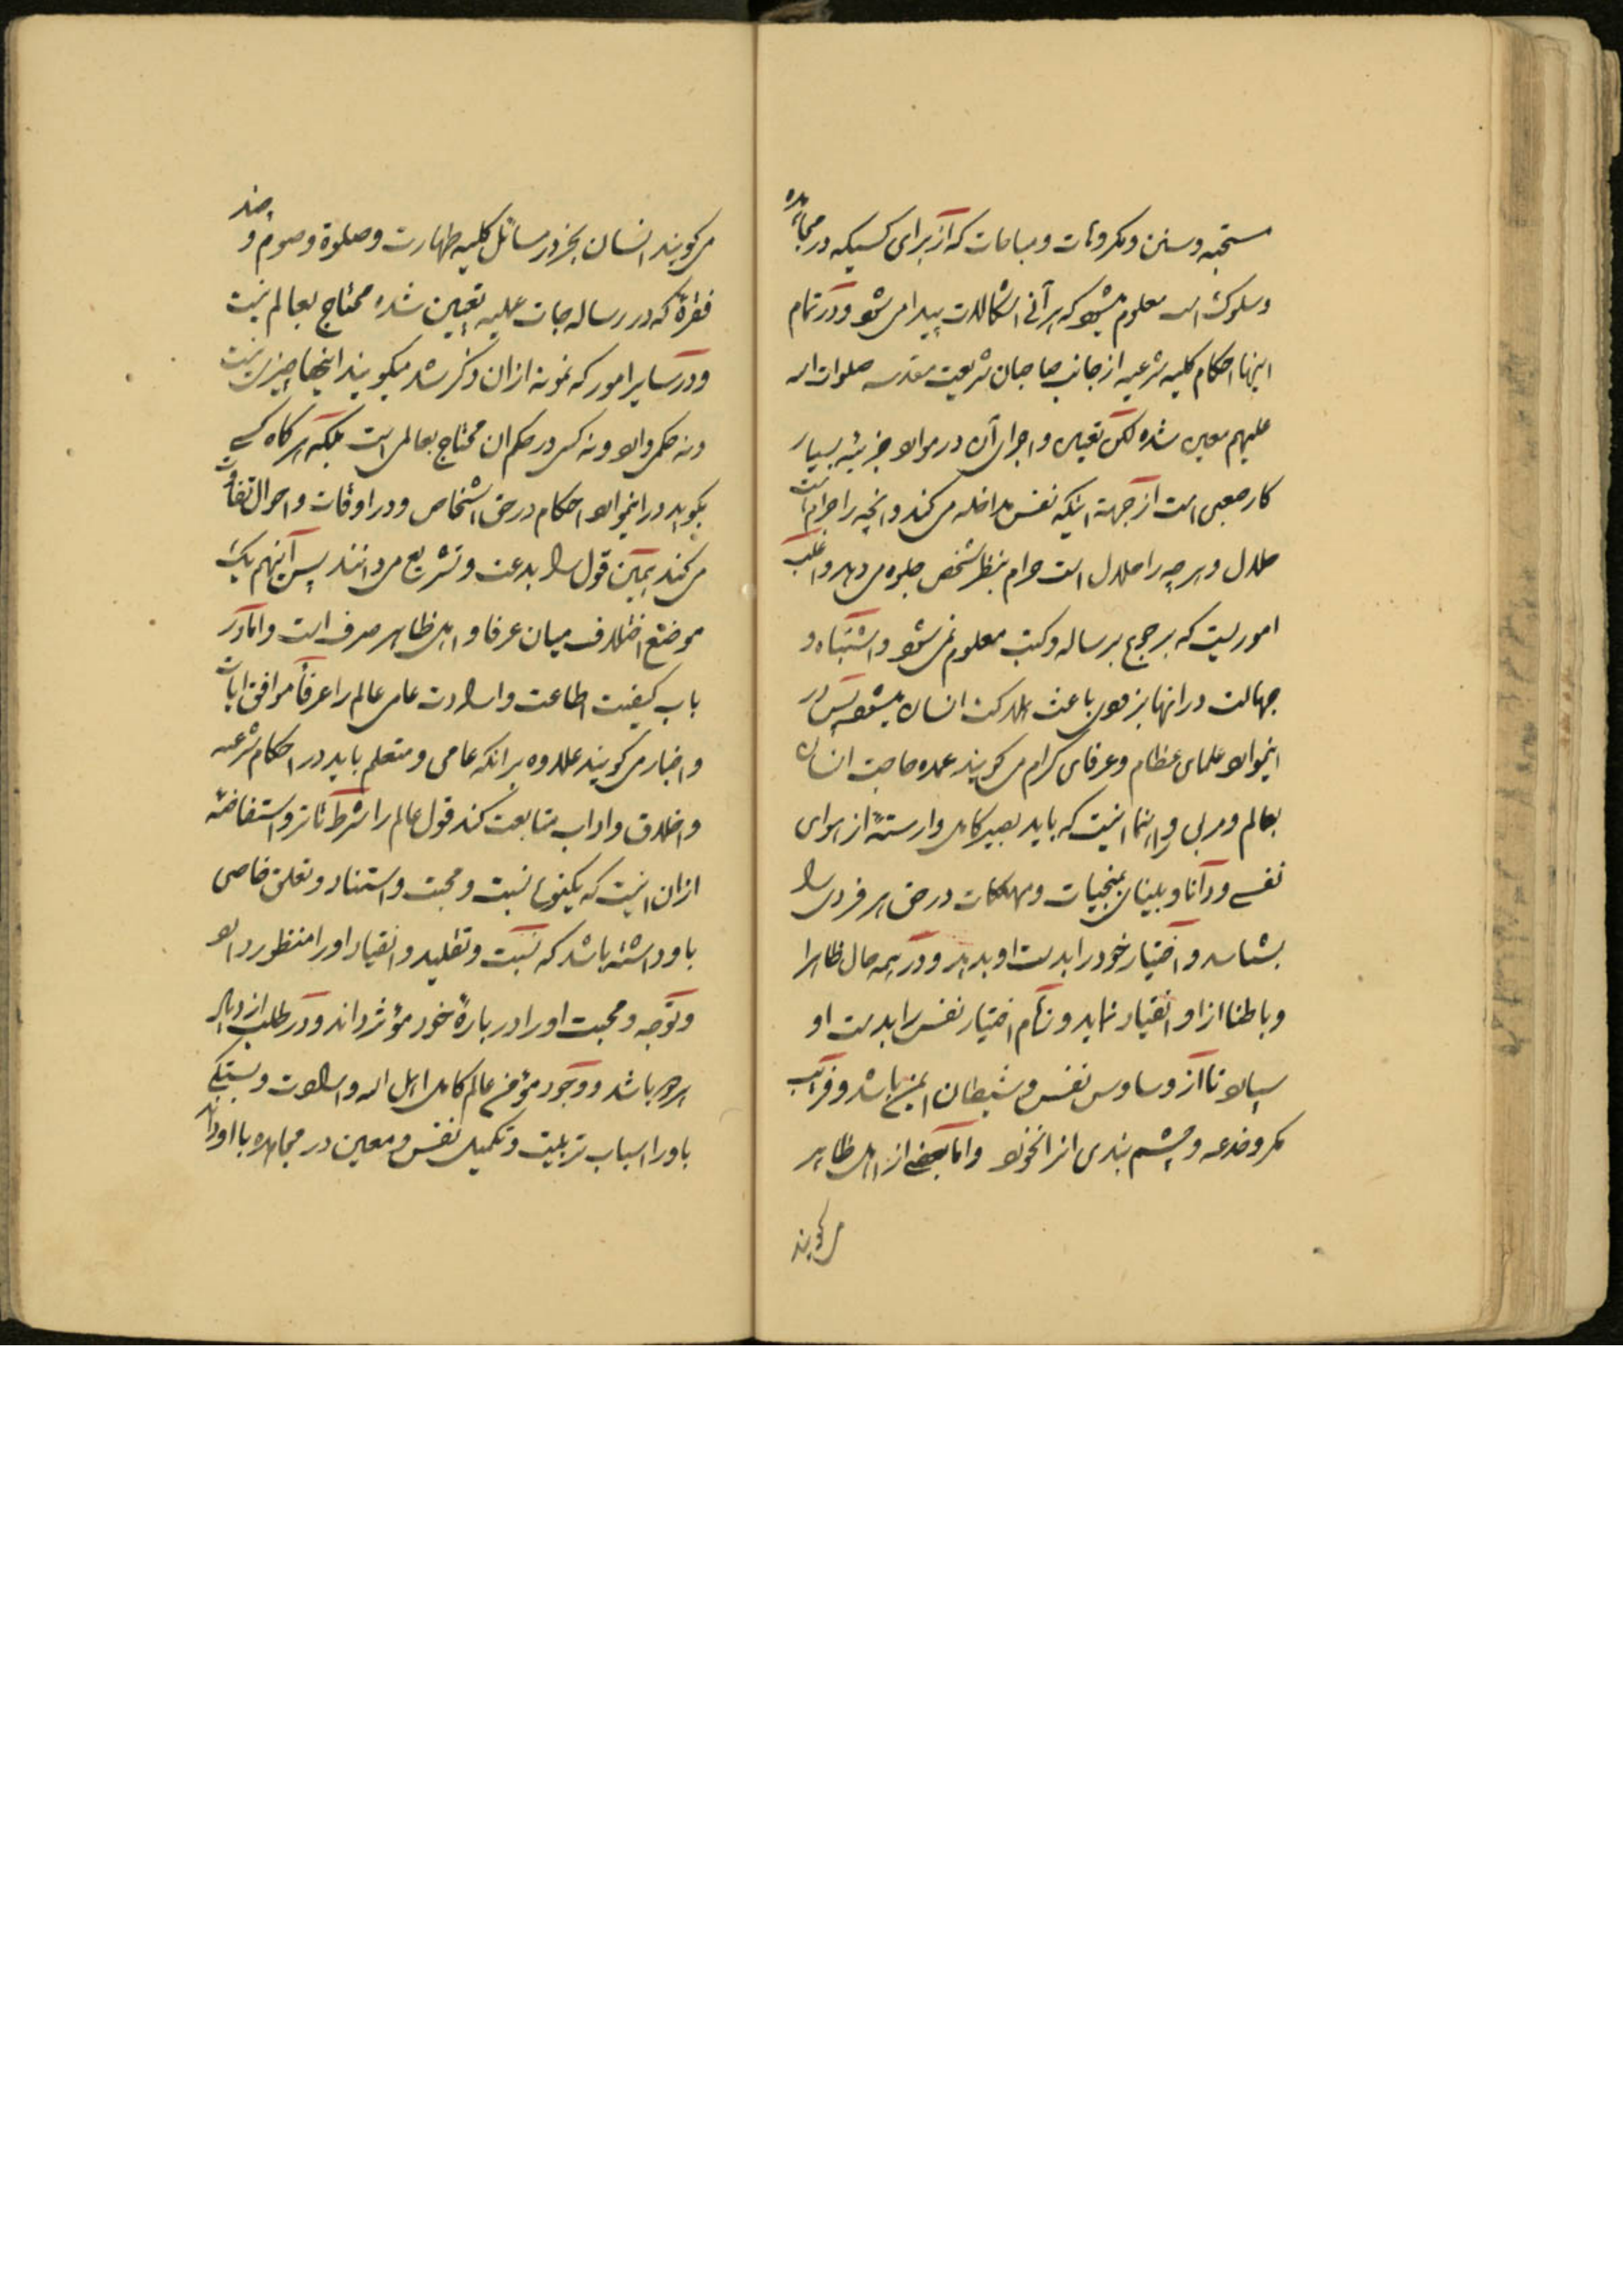 مستحبه و سنن و مکروهات و مباحات که از برای کسیکه در مجاهده
و سلوک است معلوم میشود که هر آنی اشکالات پیدا می‌شود و در تمام
اینها احکام کلیه شرعیه از جانب صاحبان شریعت مقدسه صلوات الله
علیهم معین شده لکن تعیین و اجرای آن در موارد جزئیه بسیار
کار صعبی است از جهة اینکه نفس مداخله می‌کند و انچه را حرام است
حلال و هرچه را حلال است حرام بنظر شخص جلوه می‌دهد و اغلب
اموریست که برجوع برساله و کتب معلوم نمی‌شود و اشتباه و
جهالت در انها بزودی باعث هلاکت انسان میشود پس در
اینموارد علمای عظام و عرفای کرام می‌کویند عمده حاجت انسان
بعالم و مربی و راهنما اینست که باید بصیر کامل وارستهٔ از هوای
نفس و دانا و بینای بمنجیات و مهلکات در حق هر فردی را
بشناسد و اختیار خود را بدست او بدهد و در همه حال ظاهرا
و باطنا از او انقیاد نماید و تمام اختیار نفس را بدست او
سپارد تا از وساوس نفس و شیطان ایمن باشد و فریب
مکر و خدعه و چشم بندی انرا نخورد و اما بعضی از اهل ظاهر
می‌کویند
می‌کویند انسان بجز در مسائل کلیه طهارت و صلوة و صوم و چند
فقرهٔ که در رساله‌جات عملیه تعیین شده محتاج بعالم نیست
و در سایر امور که نمونه ازان ذکر شد میکویند اینها چیزی نیست
و نه حکمی دارد و نه کسی در حکم ان محتاج بعالمی است بلکه هرکاه کسی
بکوید در اینموارد احکام در حق اشخاص و در اوقات و احوال تفاوت
می‌کند همین قول را بدعت و تشریع می‌دانند پس اینهم یک
موضع اختلاف میان عرفا و اهل ظاهر صرف است و اما در
باب کیفیت اطاعت و ارادت عامی عالم را عرفا موافق ایات
و اخبار می‌کویند علاوه برانکه عامی و متعلم باید در احکام شرعیه
و اخلاق و اداب متابعت کند قول عالم را شرط تاثر و استفاضهٔ
ازان اینست که یکنوع نسبت و محبت و استناد و تعلق خاصی
باو داشته باشد که نسبت و تقلید و انقیاد او را منظور دارد
و توجه و محبت او را در بارهٔ خود مؤثر داند و در طلب ازدیاد
بهره باشد و وجود مؤمن عالم کامل اهل الله و ارادت و بستکی
باو را اسباب تربیت و تکمیل نفس و معین در مجاهده با او داند